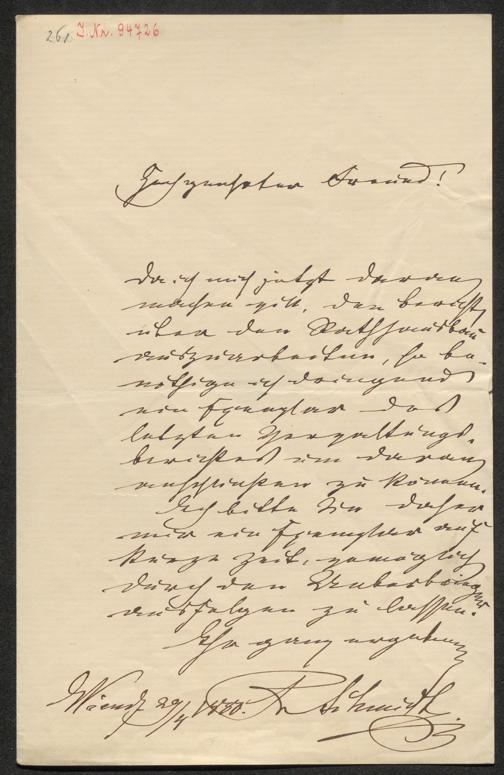 261. J. Nr. 94726
Hochgeehrter Freund!
Da ich mich jetzt daran
machen will, den Bericht
über den Rathhausbau
auszuarbeiten, so be-
nöthige ich dringend
ein Exemplar des
letzten Verwaltungs-
berichtes um daran
anschließen zu können.
Ich bitte Sie daher
mir ein Exemplar auf
kurze Zeit,
durch den Ueberbringer
ausfolgen zu lassen.
Ihr ganz ergebener
Wien 29/4 1880. Fr Schmidt